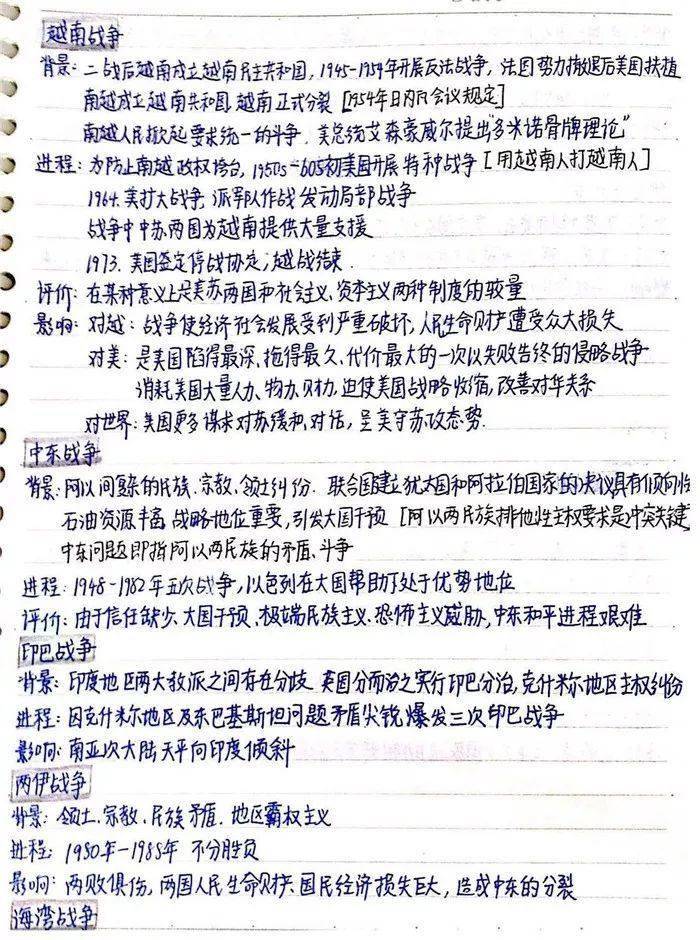 越南战争
背景：二战后越南成立越南民主共和国，1945-1954年开展反法战争，法国势力撤退后美国扶植
南越成立越南共和国，越南正式分裂［1954年日内瓦会议规定］
南越人民掀起要求统一的斗争，美总统艾森豪威尔提出"多米诺骨牌理论"
进程：为防止南越政权垮台，1950s-60s初美国开展特种战争［用越南人打越南人］
1964.美扩大战争，派军队作战发动局部战争
战争中中苏两国为越南提供大量支援
1973.美国签定停战协定；越战结束.
评价：在某种意义上是美苏两国和社会主义、资本主义两种制度的较量
影响：对越：战争使经济社会发展受到严重破坏，人民生命财产遭受众大损失
对美：是美国陷得最深、拖得最久、代价最大的一次以失败告终的侵略战争
消耗美国大量人力、物力、财力，迫使美国战略收缩，改善对华关系
对世界：美国更多谋求对苏缓和、对话，呈美守苏攻态势.
中东战争
背景：阿以间复杂的民族、宗教、领土纠纷. 联合国建立犹太国和阿拉伯国家的决议具有倾向性
石油资源丰富，战略地位重要，引发大国干预［阿以两民族排他性主权要求是冲突关键］
中东问题即指阿以两民族的矛盾、斗争
进程：1948-1982年五次战争，以色列在大国帮助下处于优势地位
评价：由于信任缺少、大国干预、极端民族主义、恐怖主义威胁，中东和平进程艰难
印巴战争
背景：印度地区两大教派之间存在分歧，英国分而治之实行印巴分治，克什米尔地区主权纠纷
进程：因克什米尔地区及东巴基斯坦问题矛盾尖锐，爆发三次印巴战争
影响：南亚次大陆天平向印度倾斜
两伊战争
背景：领土、宗教、民族矛盾，地区霸权主义
进程：1980年-1988年 不分胜负
影响：两败俱伤，两国人民生命财产、国民经济损失巨大，造成中东的分裂
海湾战争